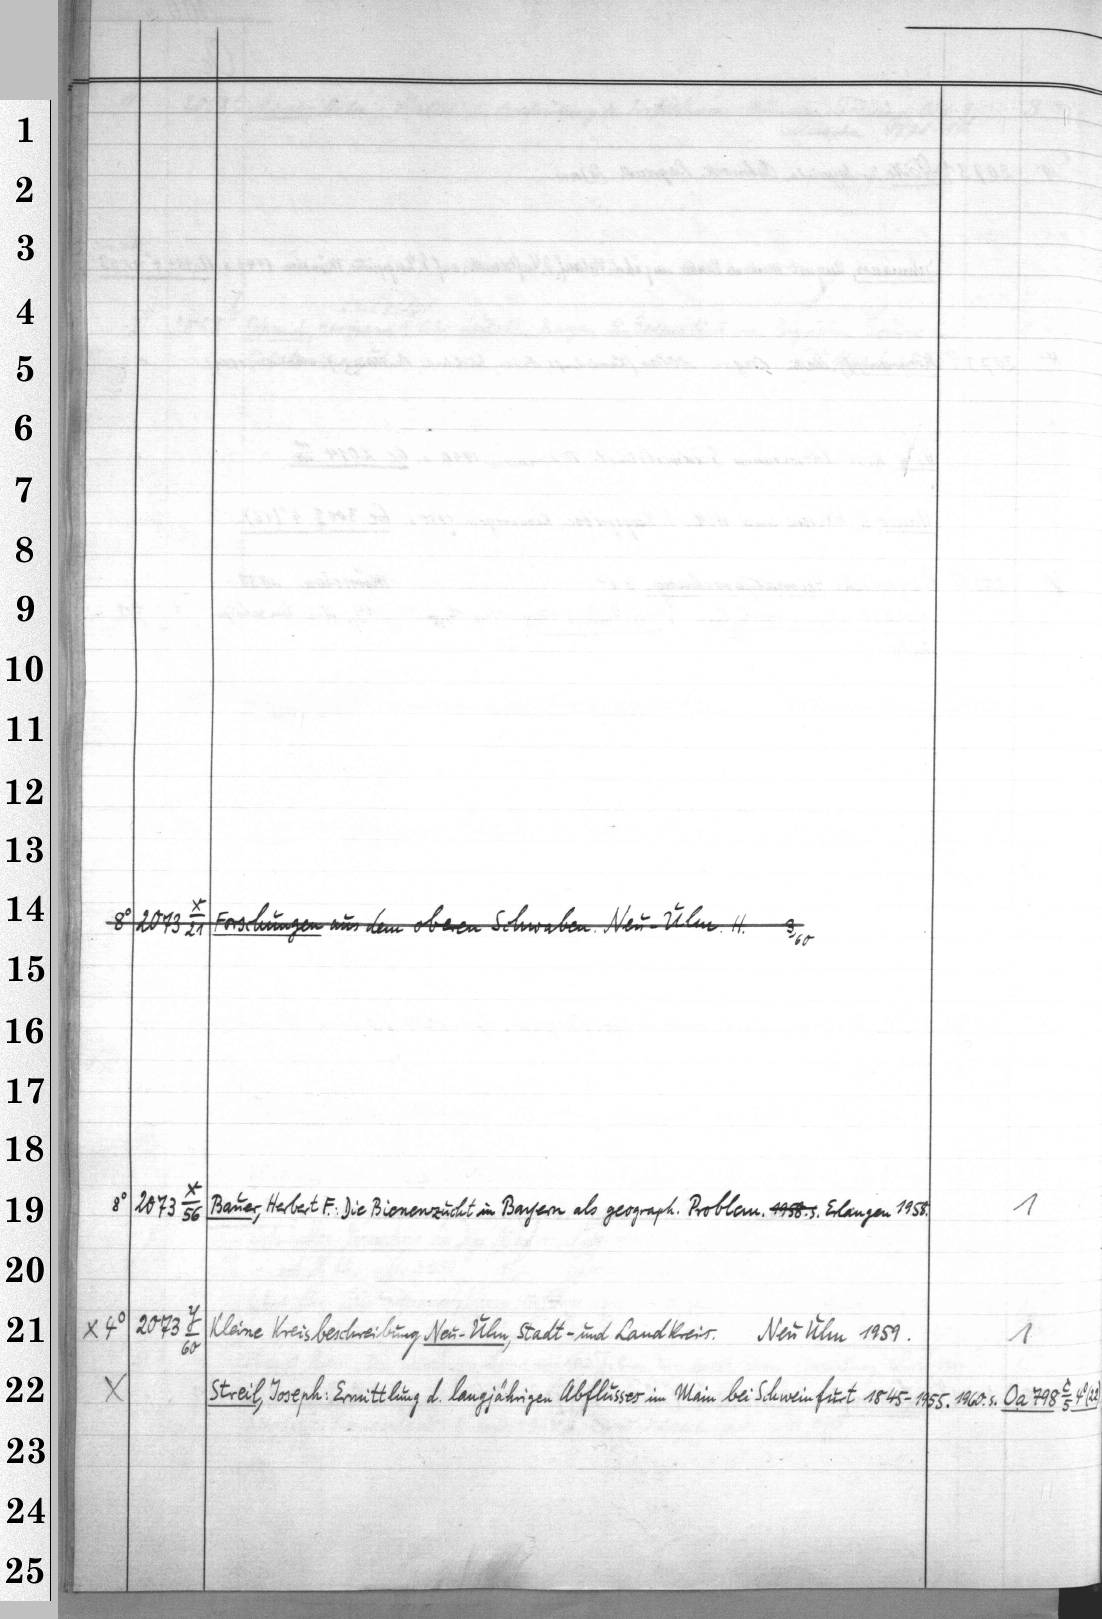 1
2
3
4
5
6
7
8
9
10
11
12
13
14 8° 2073 x/21 Forschungen aus dem oberen Schwaben. Neu-Ulm. H. 3/60
15
16
17
18
19 8° 2073 x/56 Bauer, Herbert F.: Die Bienenzucht in Bayern als geograph. Problem. 1958. s. Erlangen 1958. 1
20
21 x 4° 2073 y/60 Kleine Kreisbeschreibung Neu-Ulm, Stadt- und Landkreis. Neu Ulm 1959. 1
22 X Streil, Joseph: Ermittlung d. langjährigen Abflusses im Main bei Schweinfurt 1845-1955. 1960. s. Oa 798 c/5 4°(22)
23
24
25